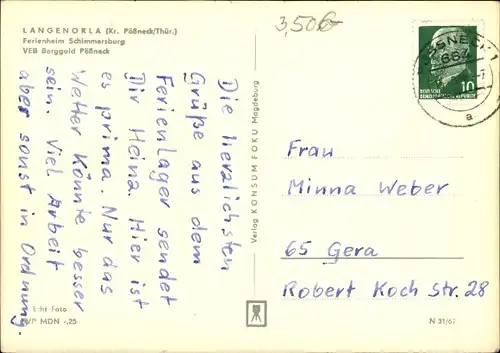 LANGENORLA (Kr. Pößneck/Thür.)
Ferienheim Schimmersburg
VEB Berggold Pößneck
3,50€
Die herzlichsten
Grüße aus dem
Ferienlager sendet
Dir Heina. Hier ist
es prima. Nur das
Wetter könnte besser
sein. Viel Arbeit
aber sonst in Ordnung
Verlag KONSUM FOKU Magdeburg
DEUTSCHE
DEMOKRATISCHE REPUBLIK
10
a
Frau
Minna Weber
65 Gera
Robert Koch str. 28
Echt Foto
EVP MDN -,25
N 31/67